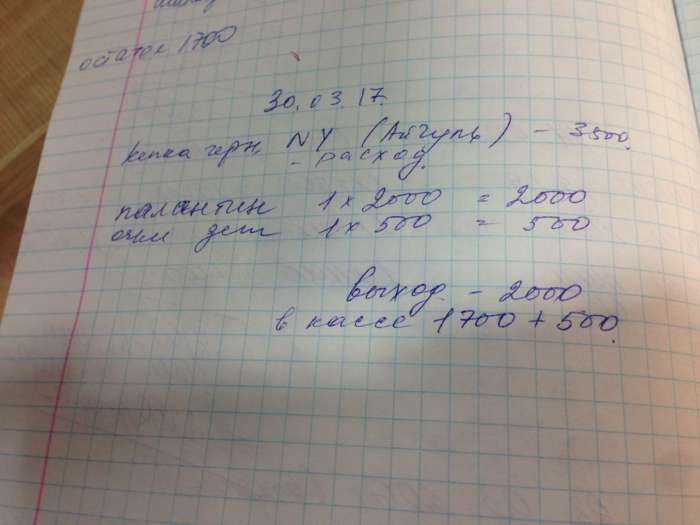 остаток 1700
30.03.17.
кепка черн. NY (Айгуль) - 3500.
- расход.
палантин 1 x 2000 = 2000
очки дет 1 x 500 = 500
выход - 2000
в кассе 1700 + 500.